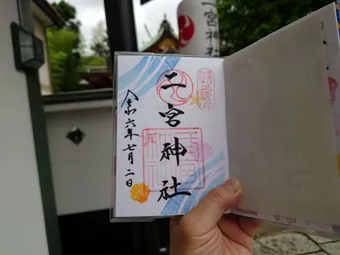 二宮神社
令和六年七月二日
二宮神社